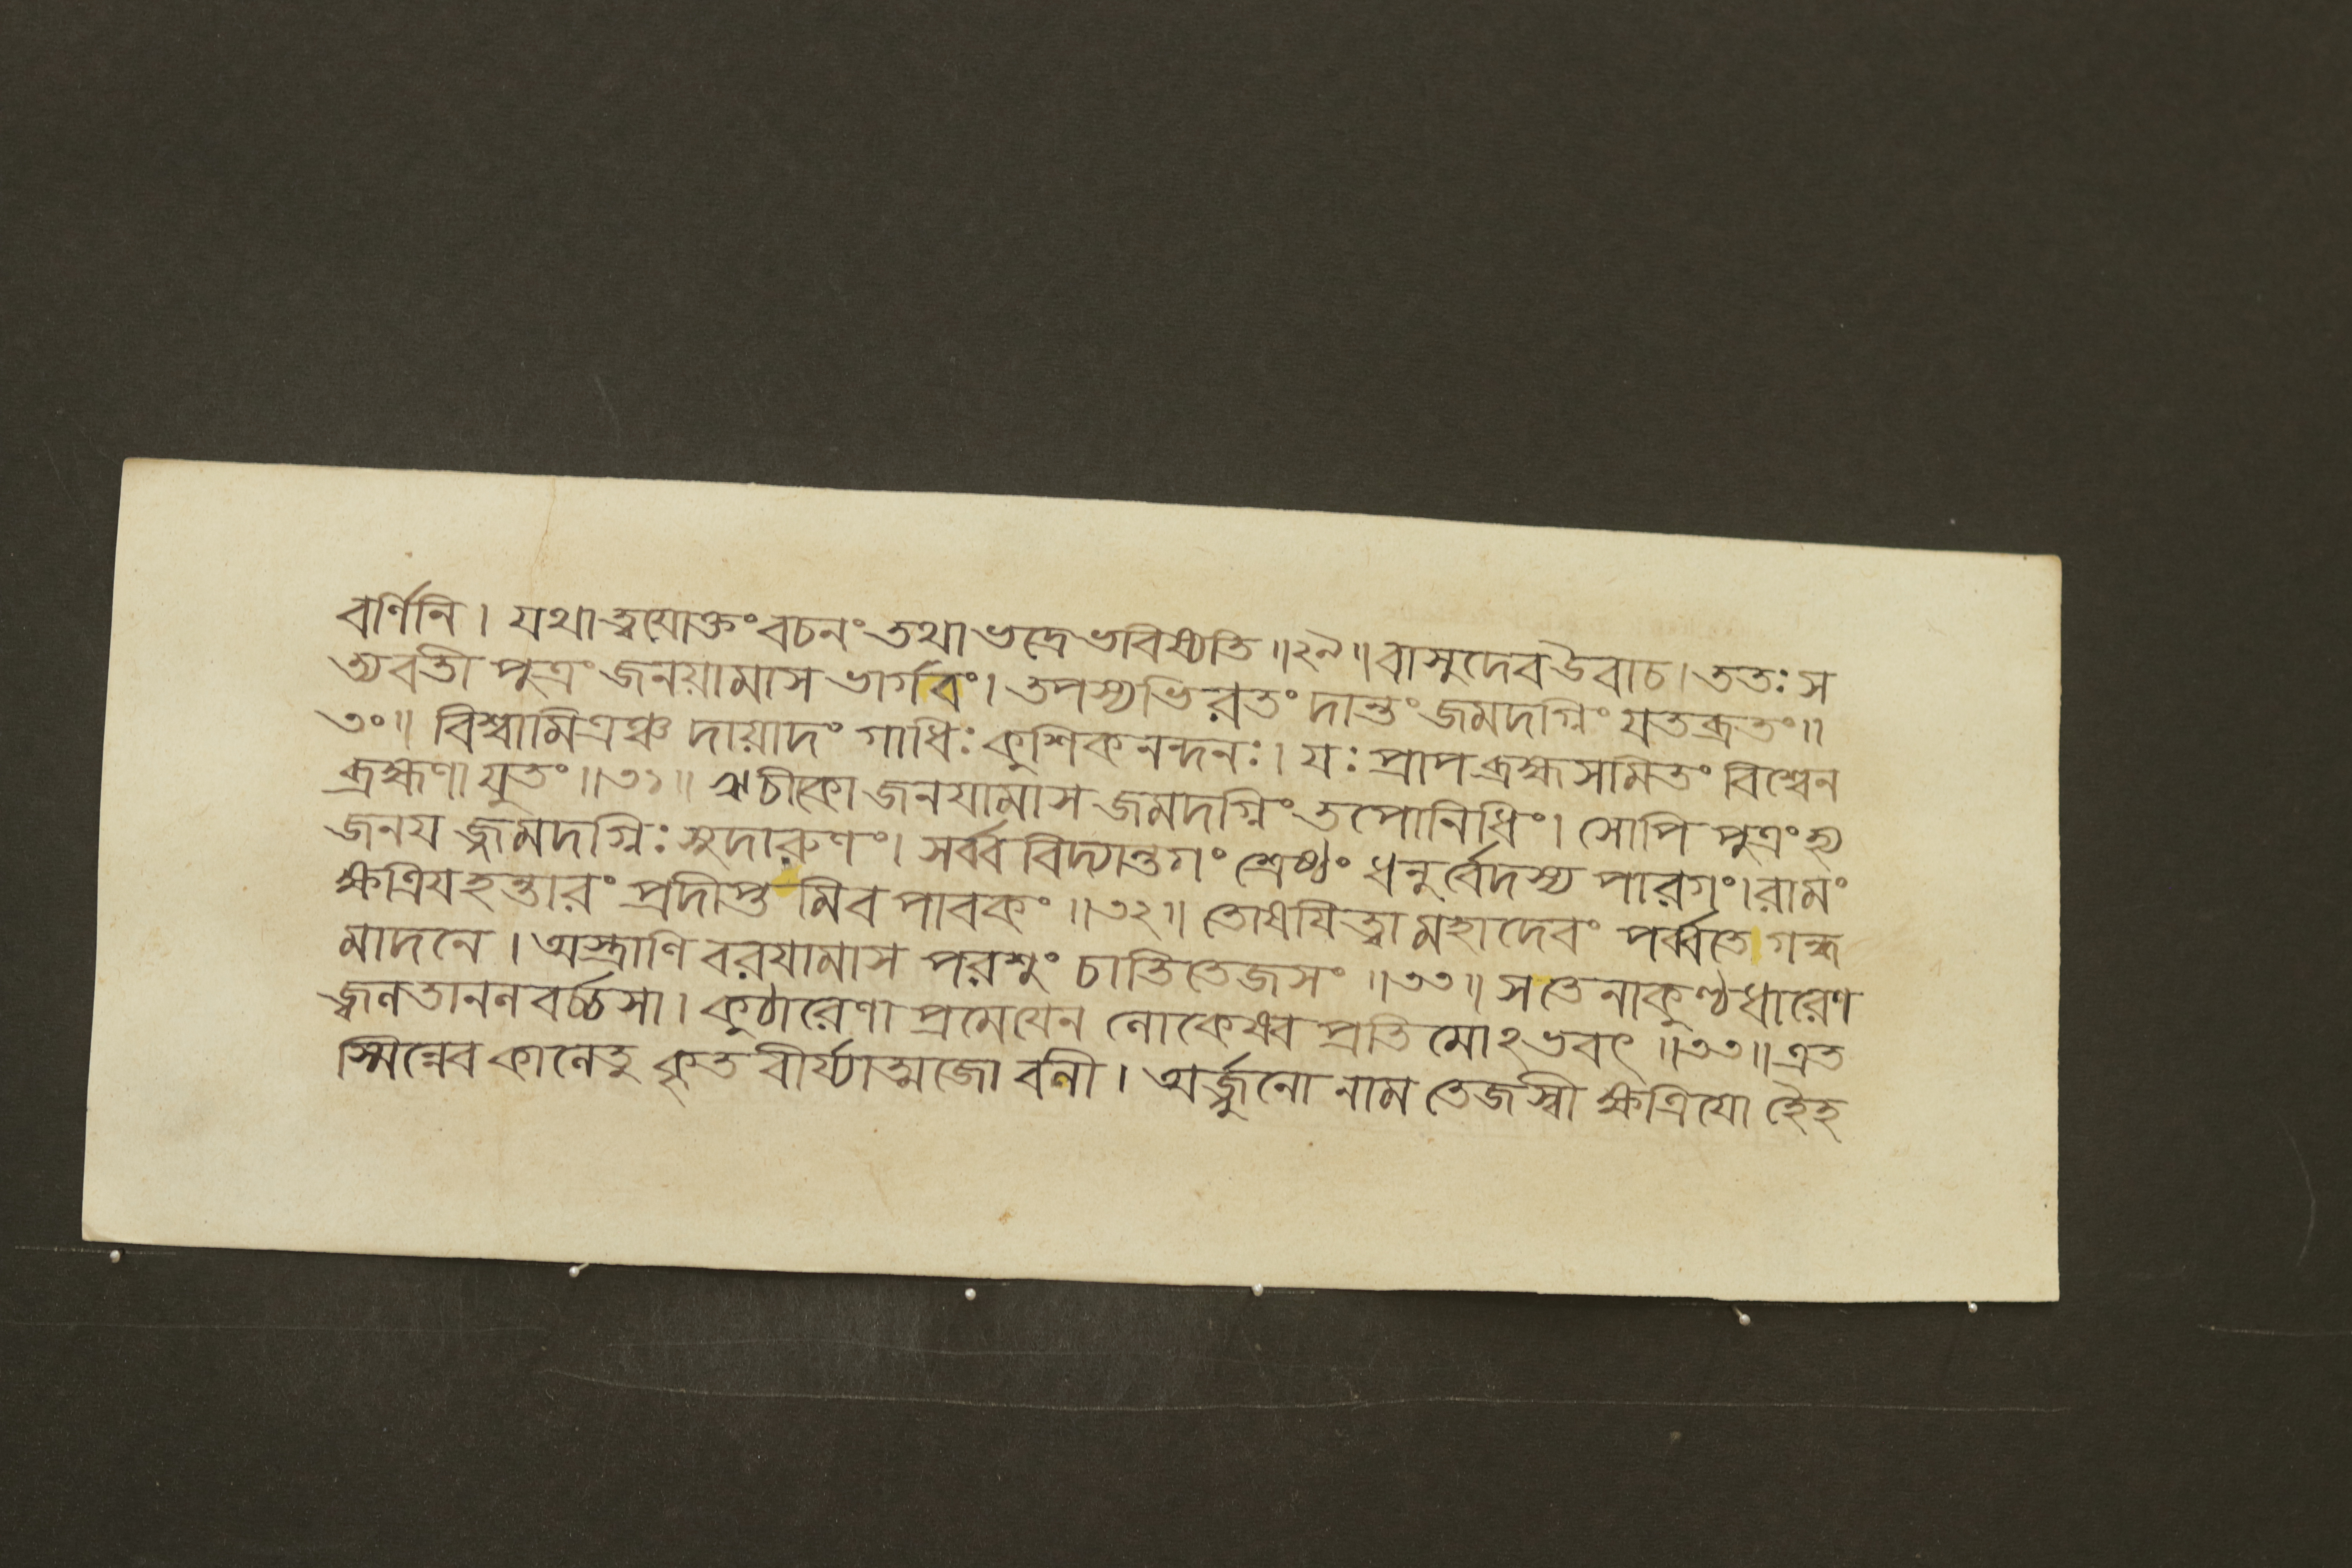 বর্ণিনি। যথা ত্বয়োক্তং বচনং তথা ভদ্রে ভবিষ্যতি॥২৯॥ বাসুদেব উবাচ। ততঃ স
ত্যবতী পুত্রং জনয়ামাস ভার্গবং। তপস্যভিরতং দান্তং জমদগ্নিং যতব্রতং॥
৩০॥ বিশ্বামিত্রঞ্চ দায়াদং গাধিঃ কুশিকনন্দনঃ। যঃ প্রাপ ব্রহ্মসমিতং বিশ্বেন
ব্রহ্মণা যুতং॥৩১॥ ঋচীকো জনযামাস জমদগ্নিং তপোনিধিং। সোপি পুত্রং হ্য
জনয জ্জমদগ্নিঃ সুদারুণং। সর্ব্ববিদ্যান্তগং শ্রেষ্ঠং ধনুর্বেদস্য পারগং। রামং
ক্ষত্রিযহন্তারং প্রদীপ্ত মিব পাবকং॥৩২॥ তোষযিত্বা মহাদেবং পর্ব্বতে গন্ধ
মাদনে। অস্ত্রাণি বরযামাস পরশুং চাতিতেজসং॥৩৩॥ স তেনাকুণ্ঠধারেণ
জ্বলতানলবর্চ্চসা। কুঠারেণা প্রমেযেন লোকেষ্বপ্রতিমোঽভবৎ॥৩৩॥ এত
স্মিন্নেব কালেতু কৃতবীর্য্যাত্মজো বলী। অর্জ্জুনো নাম তেজস্বী ক্ষত্রিযো হৈহ